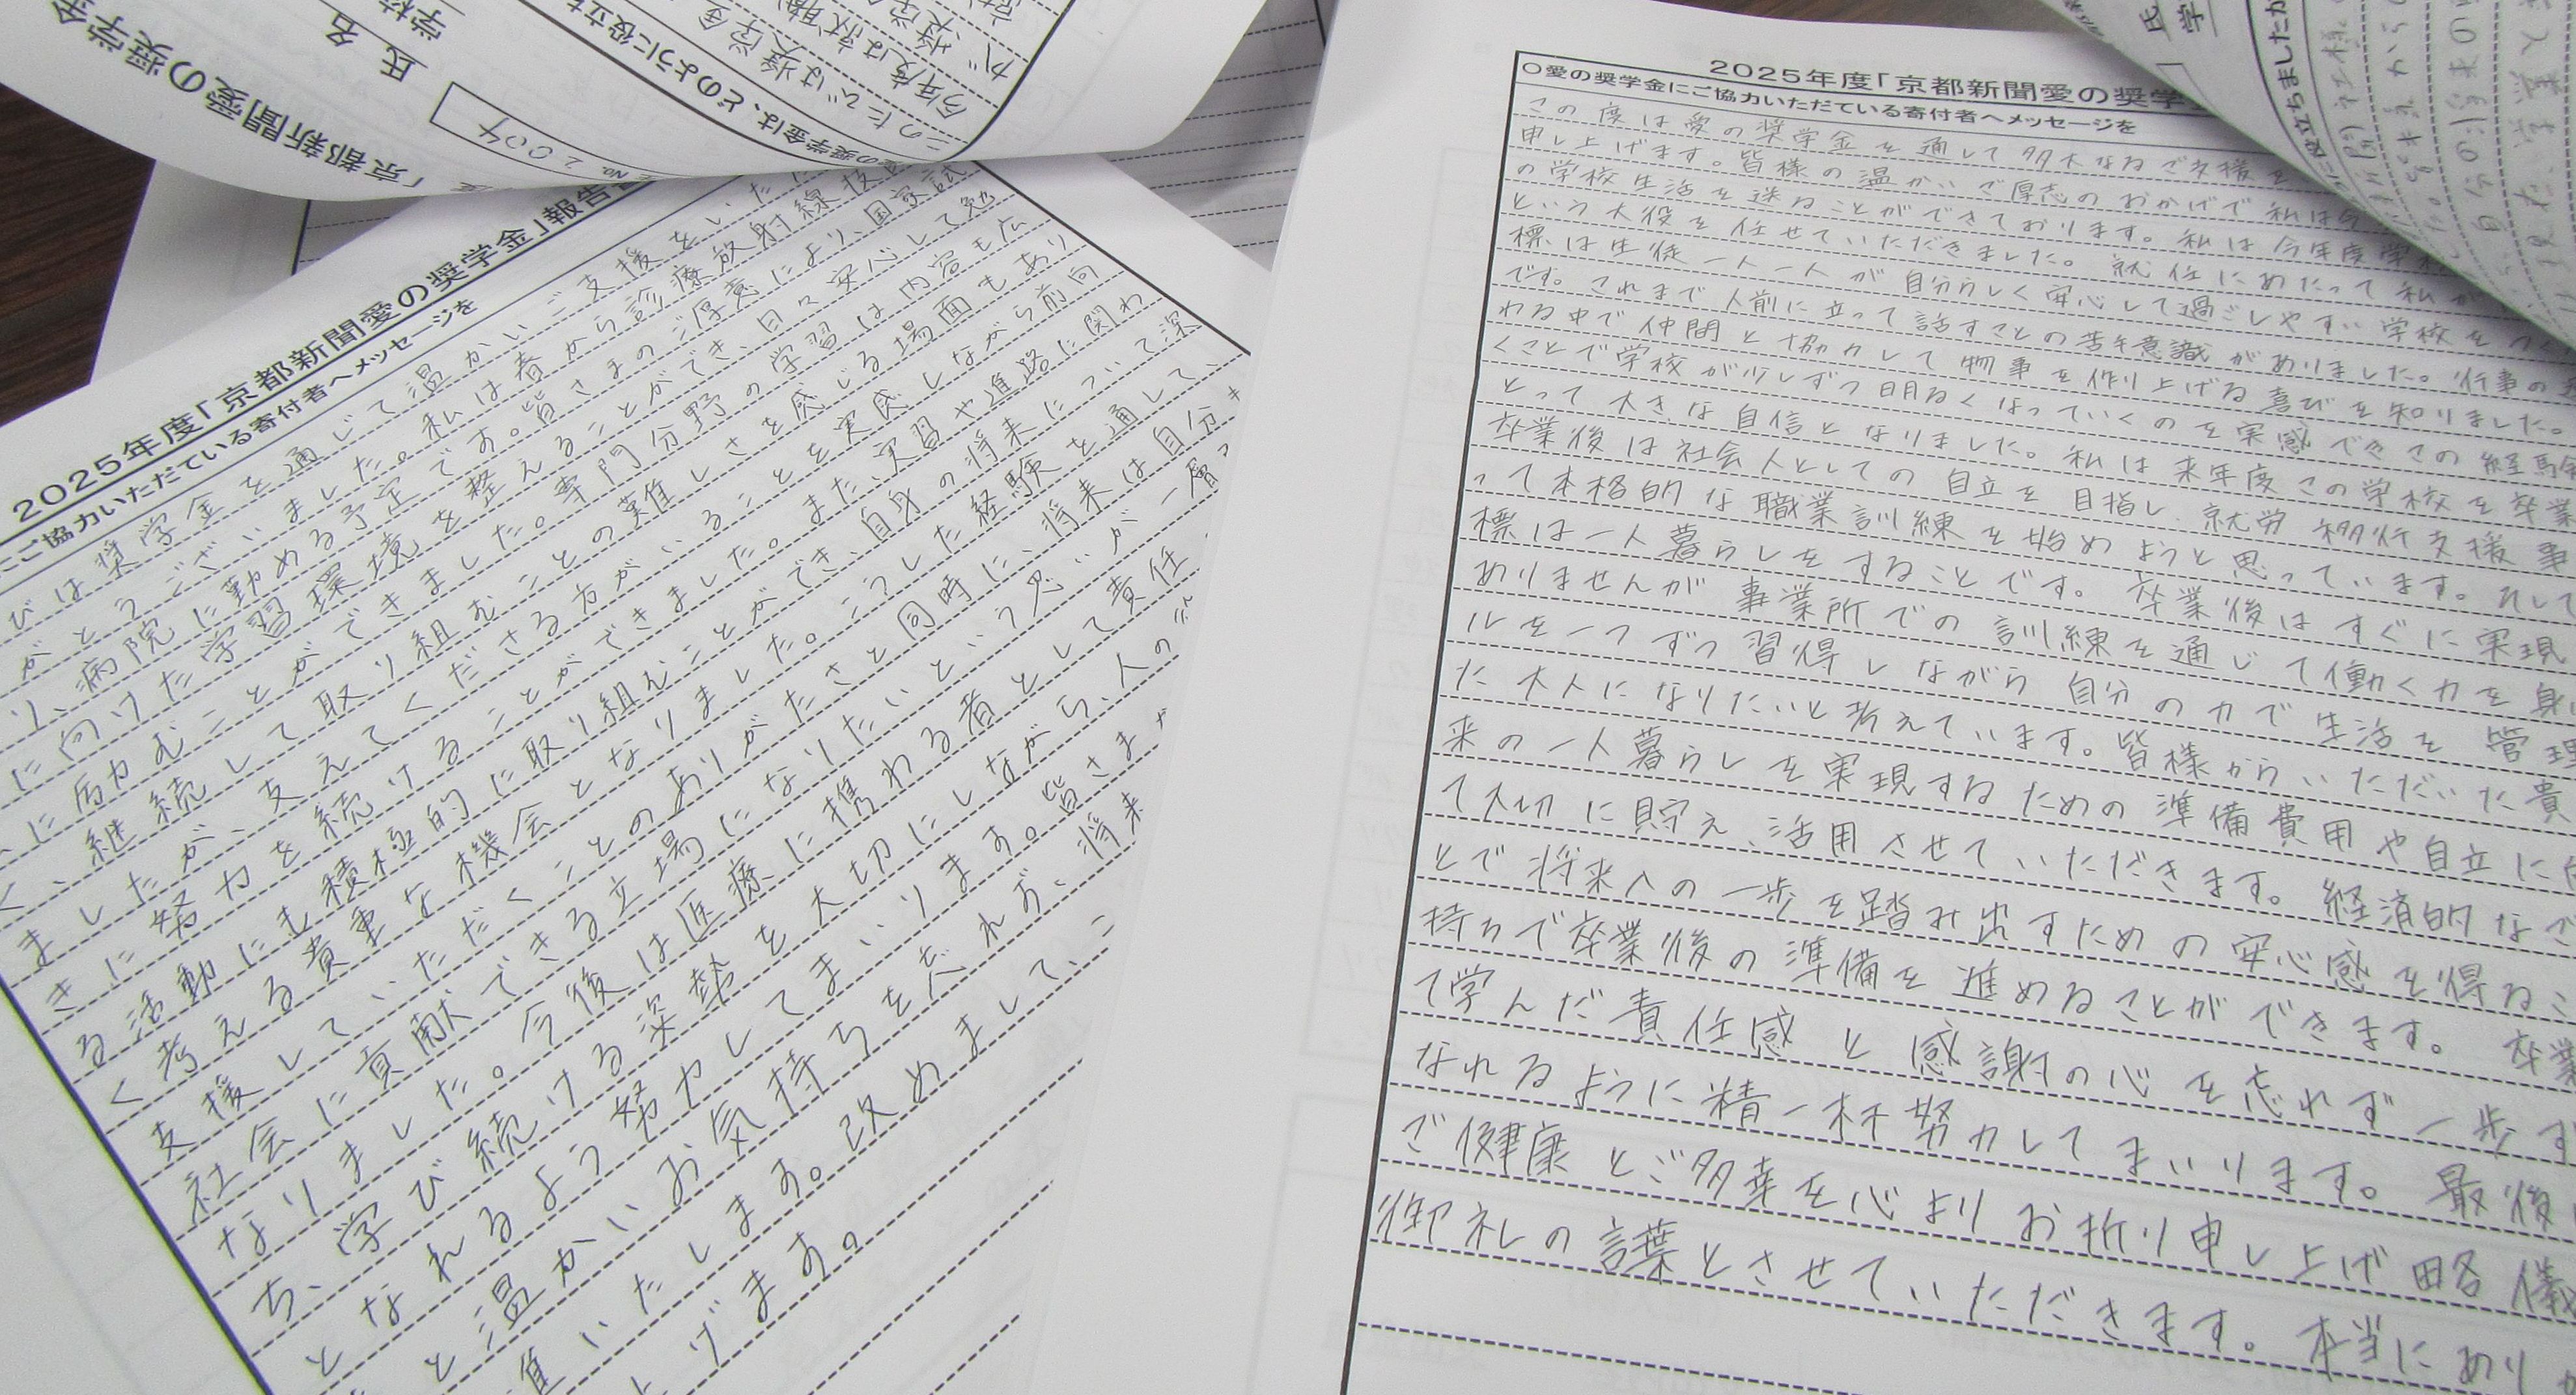 「京都新聞愛の奨学金
氏名
学校
No. 2004
奨学金は、どのように役立ち
このたびは奨学金
今年度は就職
2025年度「京都新聞愛の奨学金」報告
にご協力いただている寄付者へメッセージを
びは奨学金を通じて温かいご支援をいただ
がとうございました。私は春から診療放射線技
り、病院に勤める予定です。皆さまのご厚意により、国家試
に向けた学習環境を整えることができ、日々安心して勉
に励むことができました。専門分野の学習は内容も広
く、継続して取り組むことの難しさを感じる場面もあり
ましたが、支えてくださる方がいることを実感しながら前向
きに努力を続けることができました。また、実習や進路に関わ
る活動にも積極的に取り組むことができ、自身の将来について深
く考える貴重な機会となりました。こうした経験を通して、
支援していただくことのありがたさと同時に、将来は自分も
社会に貢献できる立場になりたいという思いが一層つ
なりました。今後は医療に携わる者として責任
ち、学び続ける姿勢を大切にしながら、人の
となれるよう努力してまいります。皆さまが
と温かいお気持ちを忘れず、将来
進いたします。改めまして、こ
上げます。
2025年度「京都新聞愛の奨学
〇愛の奨学金にご協力いただている寄付者へメッセージを
この度は愛の奨学金を通して多大なるご支援を
申し上げます。皆様の温かいご厚志のおかげで私は
の学校生活を送ることができております。私は今年度学
という大役を任せていただきました。就任にあたって私が
標は生徒一人一人が自分らしく安心して過ごしやすい学校をつく
です。これまで人前に立って話すことの苦手意識がありました。行事の
わる中で仲間と協力して物事を作り上げる喜びを知りました。
くことで学校が少しずつ明るくなっていくのを実感でき、この経験
とって大きな自信となりました。私は来年度この学校を卒業
卒業後は社会人としての自立を目指し、就労移行支援事
って本格的な職業訓練を始めようと思っています。そして
標は一人暮らしをすることです。卒業後はすぐに実現
ありませんが事業所での訓練を通じて働く力を身
ルを一つずつ習得しながら自分の力で生活を管理
た大人になりたいと考えています。皆様からいただいた貴
来の一人暮らしを実現するための準備費用や自立に向
て大切に貯え、活用させていただきます。経済的なご
とで将来への一歩を踏み出すための安心感を得るこ
持ちで卒業後の準備を進めることができます。卒業
て学んだ責任感と感謝の心を忘れず一歩ず
なれるように精一杯努力してまいります。最後
ご健康とご多幸を心よりお祈り申し上げ略儀
御礼の言葉とさせていただきます。本当にあり
役立ちましたか